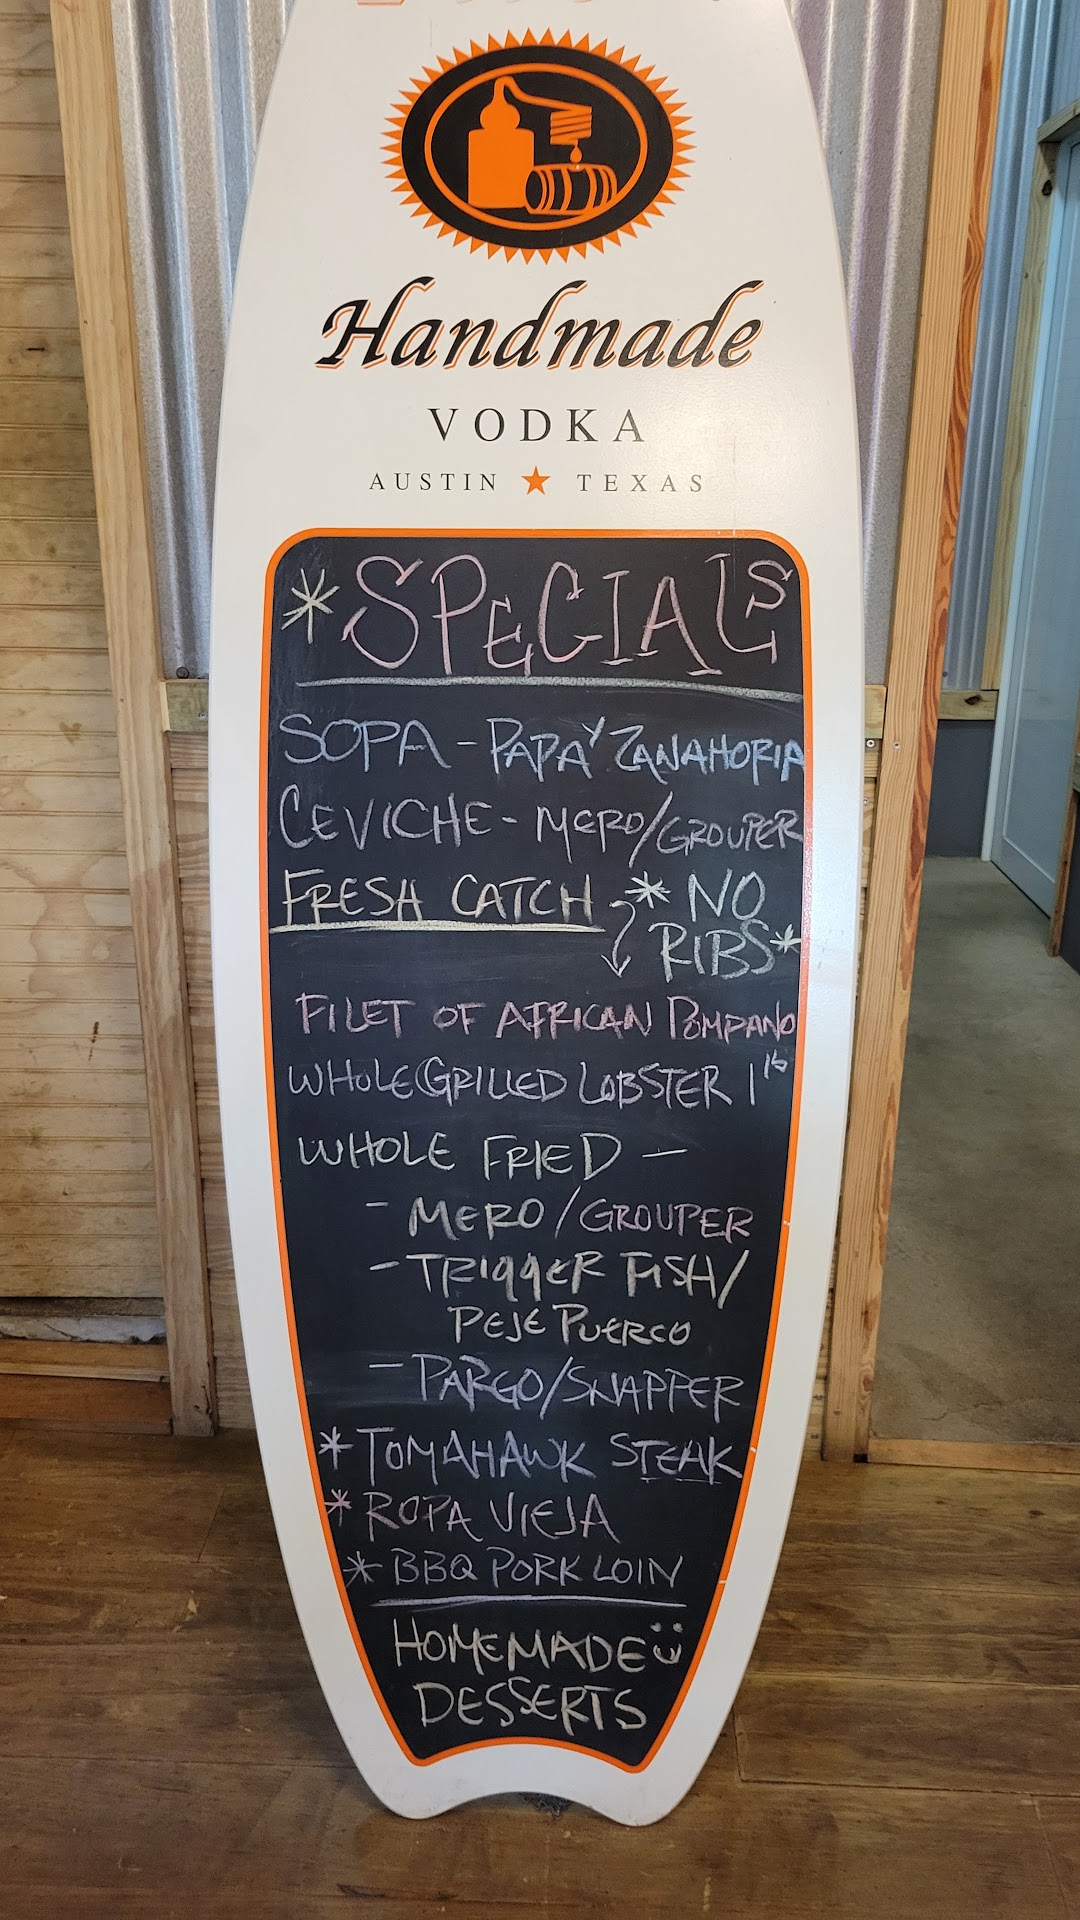 Handmade
VODKA
AUSTIN ★ TEXAS
* SPECIALS
SOPA - PAPA Y ZANAHORIA
CEVICHE - MERO/GROUPER
FRESH CATCH * NO
RIBS *
FILET OF AFRICAN POMPANO
WHOLE GRILLED LOBSTER 1 lb
WHOLE FRIED -
- MERO/GROUPER
- TRIGGER FISH/
PEJE PUERCO
- PARGO/SNAPPER
* TOMAHAWK STEAK
* ROPA VIEJA
* BBQ PORK LOIN
HOMEMADE
DESSERTS